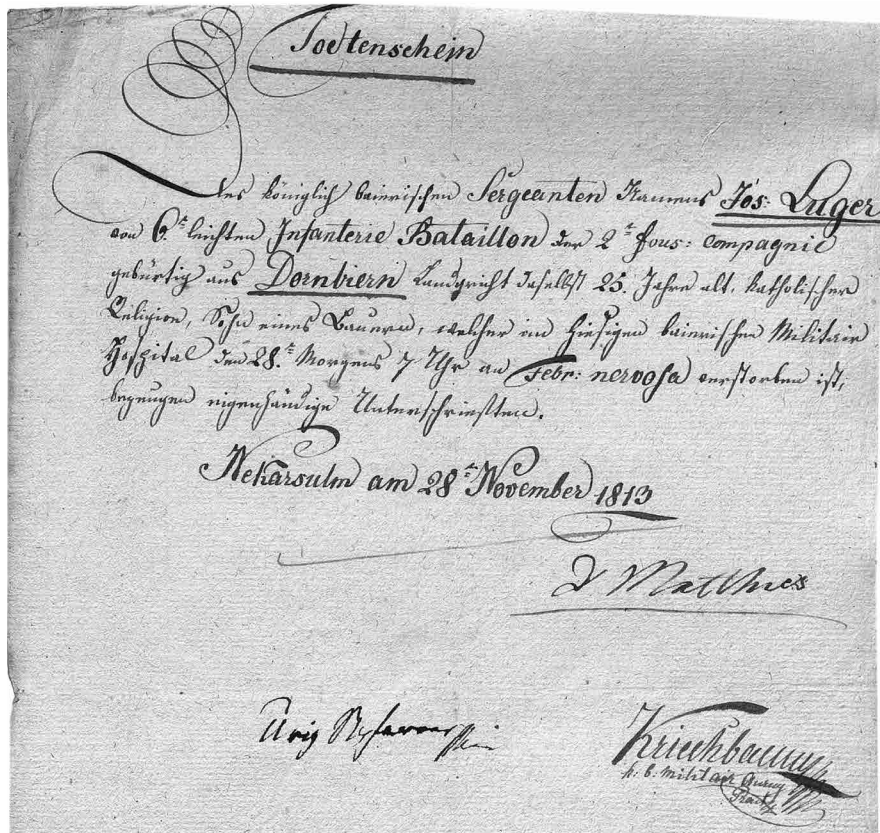 Todtenschein
des königlich baierischen Sergeanten Namens Jos: Luger
von 6.t leichten Infanterie Bataillon der 2t Fous: Compagnie
gebürtig aus Dornbiern Landgricht daselbst 25. Jahre alt, katholischer
Religion, Sohn eines Bauern, welcher im hiesigen baierischen Militair
Hospital den 28.t Morgens 7 Uhr an Febr: nervosa verstorben ist,
bezeugen eigenhändige Unterschriften.
Nekarsulm am 28t November 1813
D Matthies
Kriechbaum
k. b. Militair